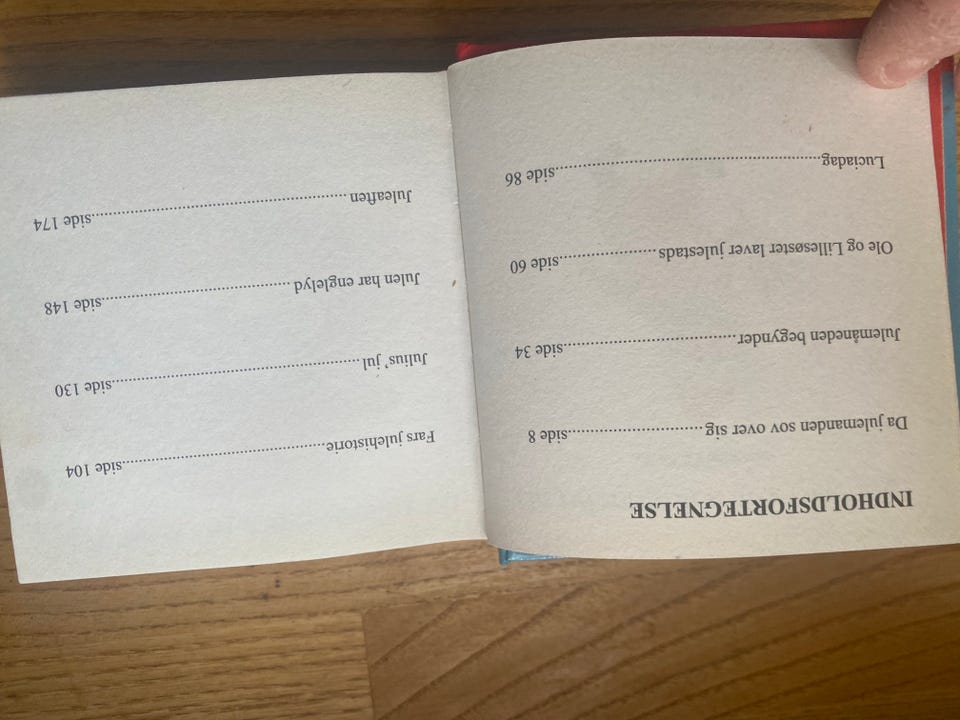 INDHOLDSFORTEGNELSE
Da julemanden sov over sig..............................side 8
Julemåneden begynder...................................side 34
Ole og Lillesøster laver julestads....................side 60
Luciadag......................................................side 86
Fars julehistorie..........................................side 104
Julius' jul.....................................................side 130
Julen har englelyd.......................................side 148
Juleaften.....................................................side 174